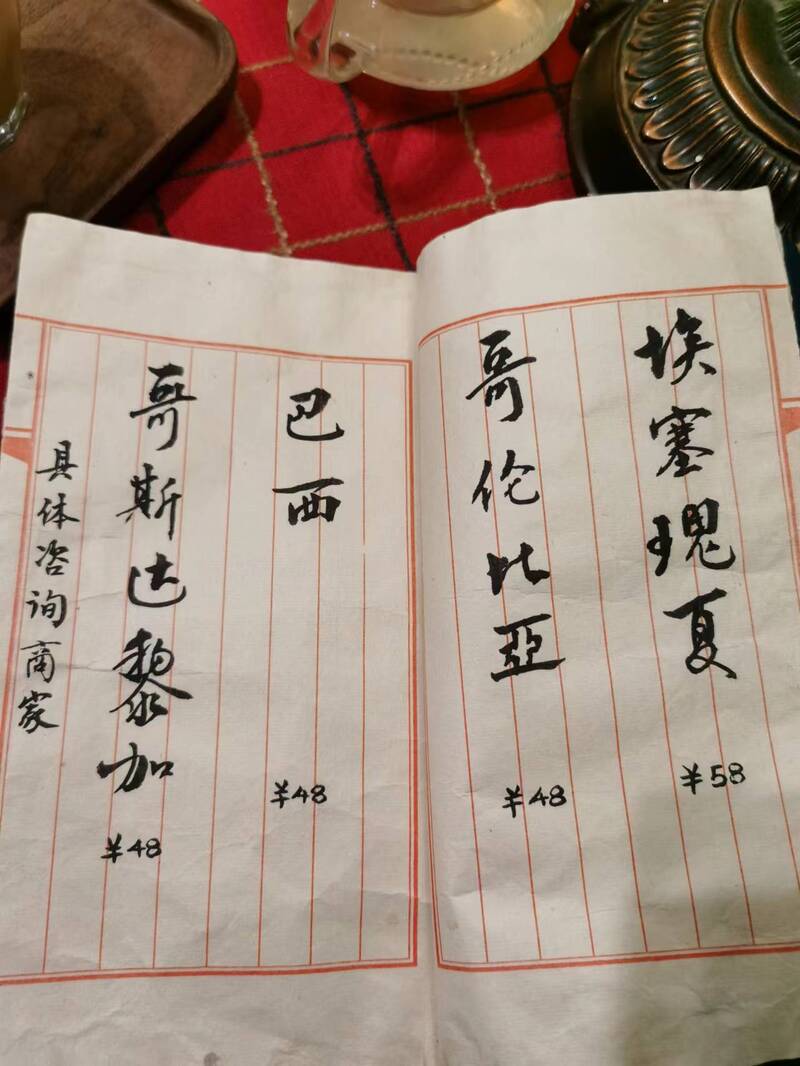 埃塞瑰夏
¥58
哥伦比亞
¥48
巴西
¥48
哥斯达黎加
¥48
具体咨询商家